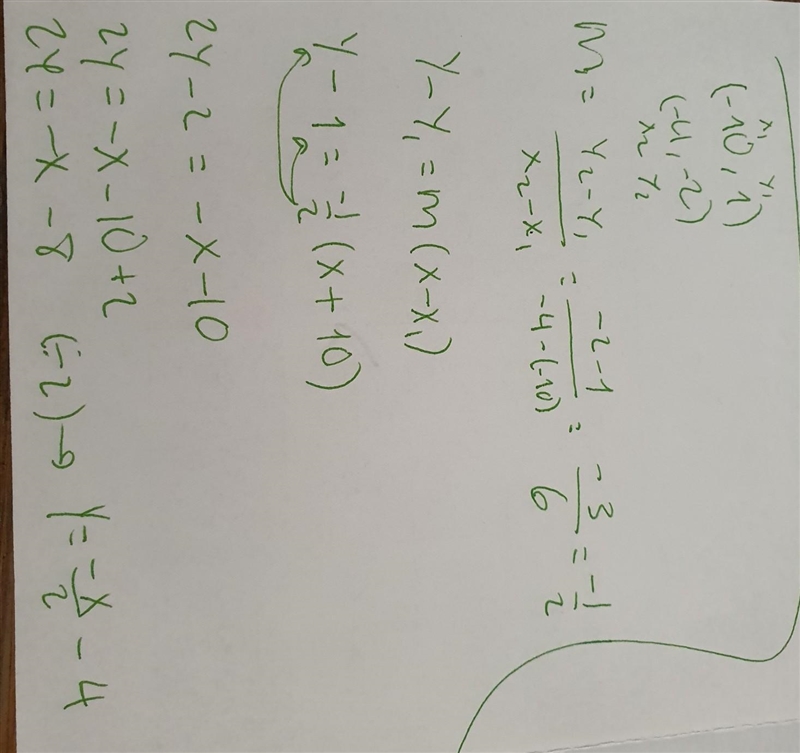 x₁ y₁
(-10, 1)
(-4, -2)
x₂ y₂
m = y₂-y₁/x₂-x₁ = -2-1/-4-(-10) = -3/6 = -1/2
y - y₁ = m(x-x₁)
y - 1 = -1/2 (x + 10)
2y - 2 = -x - 10
2y = -x - 10 + 2
2y = -x - 8 (÷2) → y = -x/2 - 4